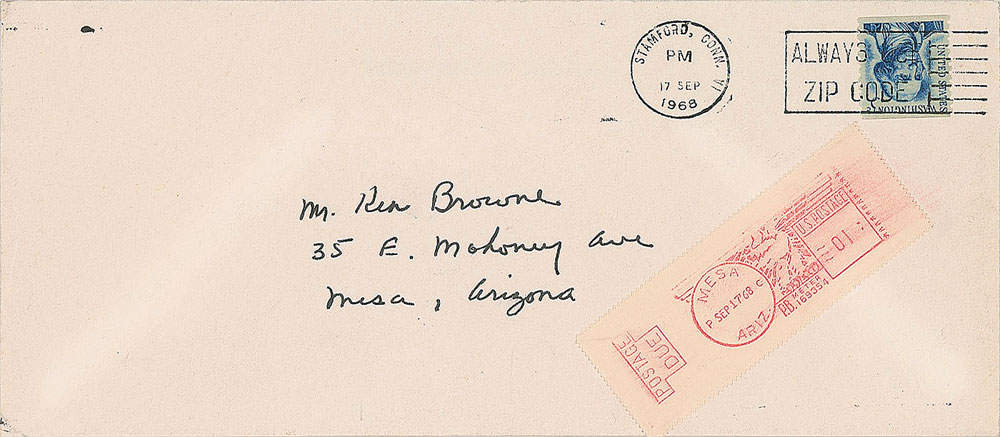 STAMFORD, CONN.
PM
17 SEP
1968
ALWAYS
ZIP CODE
UNITED STATES
WASHINGTON
Mr. Ken Browne
35 E. Mahoney Ave
Mesa, Arizona
U.S. POSTAGE
01
MESA
P SEP 17'68 C
ARIZ.
P.B.
METER
169354
POSTAGE
DUE